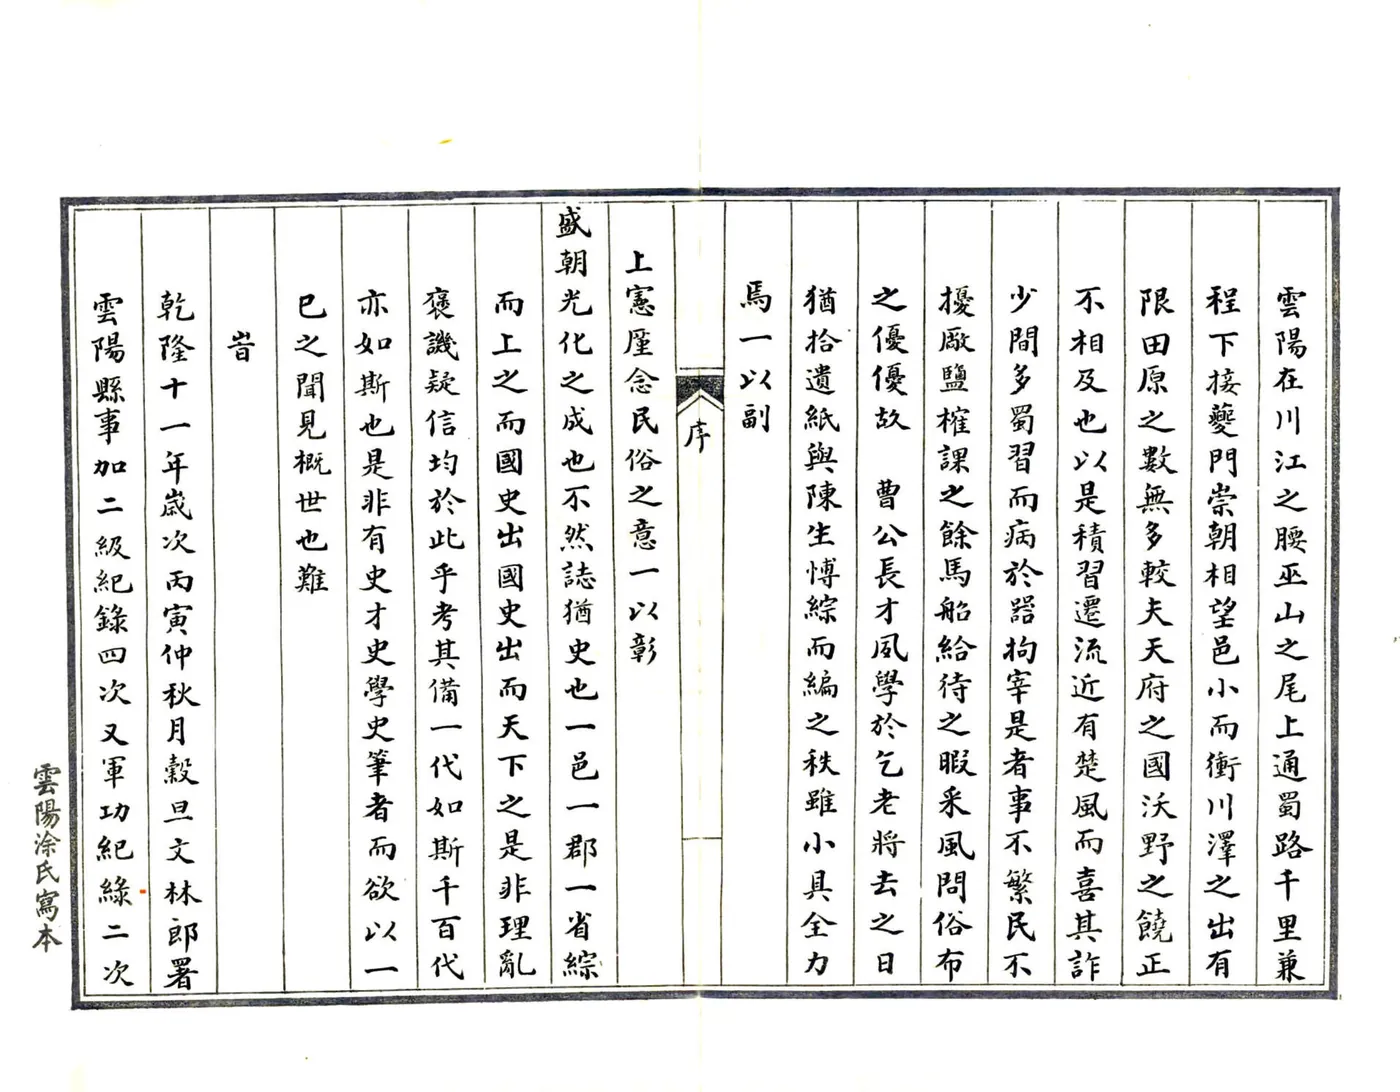 雲陽在川江之腰巫山之尾上通蜀路千里兼
程下接夔門崇朝相望邑小而衝川澤之出有
限田原之數無多較夫天府之國沃野之饒正
不相及也以是積習遷流近有楚風而喜其詐
少間多蜀習而病於器拘宰是者事不繁民不
擾厰鹽榷課之餘馬船給待之暇采風問俗布
之優優故　曹公長才夙學於乞老將去之日
猶拾遺紙與陳生博綜而編之秩雖小具全力
焉一以副
序
上憲厪念民俗之意一以彰
盛朝光化之成也不然誌猶史也一邑一郡一省綜
而上之而國史出國史出而天下之是非理亂
褒譏疑信均於此乎考其備一代如斯千百代
亦如斯也是非有史才史學史筆者而欲以一
已之聞見概世也難
旹
乾隆十一年歲次丙寅仲秋月穀旦文林郎署
雲陽縣事加二級紀錄四次又軍功紀綠二次
雲陽涂氏寫本